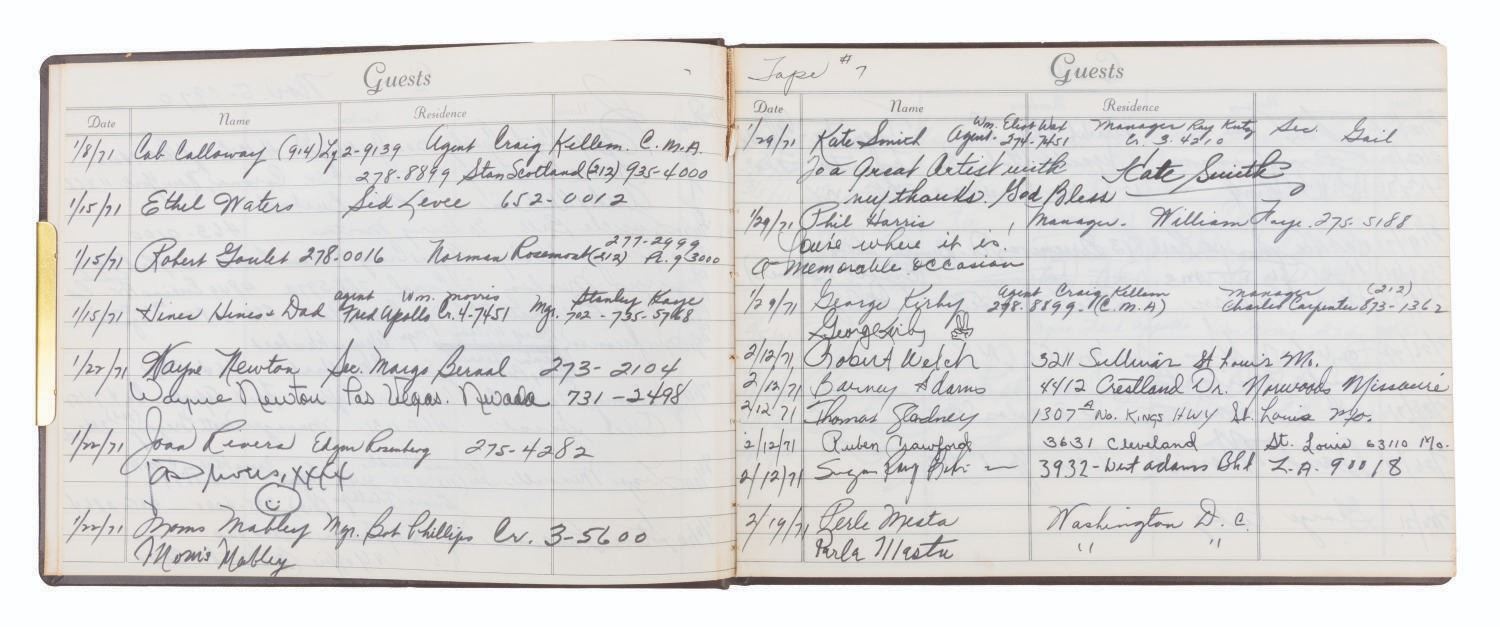 Guests
Date Name Residence
1/8/71 Cab Calloway (914) Lg 2-9139 Agent Craig Kellem. C.M.A.
278-8899 Stan Scotland (212) 935-4000
1/15/71 Ethel Waters Sid Levee 652-0012
277-2999
1/15/71 Robert Goulet 278-0016 Norman Rosemont (212) 3000
agent Wm. Morris Stanley Kaye
1/15/71 Hines Hines + Dad Fred Apollo Cr. 4-7451 Mgr. 702-735-5768
1/22/71 Wayne Newton Sec. Margo Bernal 273-2104
Wayne Newton Las Vegas. Nevada 731-2498
1/22/71 Joan Rivers Edgar Rosenberg 275-4282
Joan Rivers, XXXX
1/22/71 Moms Mabley Mgr. Bob Phillips Cr. 3-5600
Moms Mabley
Tape #7
Guests
Date Name Residence
Wm. Eliot Wax Manager Ray Katz Sec. Gail
1/29/71 Kate Smith Agent- 274-7451 Cr. 3-4210
To a Great Artist with Kate Smith
my thanks. God Bless
1/29/71 Phil Harris Manager- William Faye. 275-5188
You're where it is.
A memorable occasion
agent Craig Kellem manager (212)
1/29/71 George Kirby 278-8899-(C.M.A) Charles Carpenter 873-1362
George Kirby
2/12/71 Robert Welch 3211 Sullivan St Louis Mo.
2/12/71 Barney Adams 4412 Crestland Dr. Norwoods Missouri
2/12/71 Thomas Gladney 1307A No. Kings Hwy St. Louis Mo.
2/12/71 Ruben Crawford 3631 Cleveland St. Louis 63110 Mo.
2/12/71 Sugar Ray Robinson 3932-West Adams Blvd L.A. 90018
2/19/71 Perle Mesta Washington D.C.
Perle Mesta " "